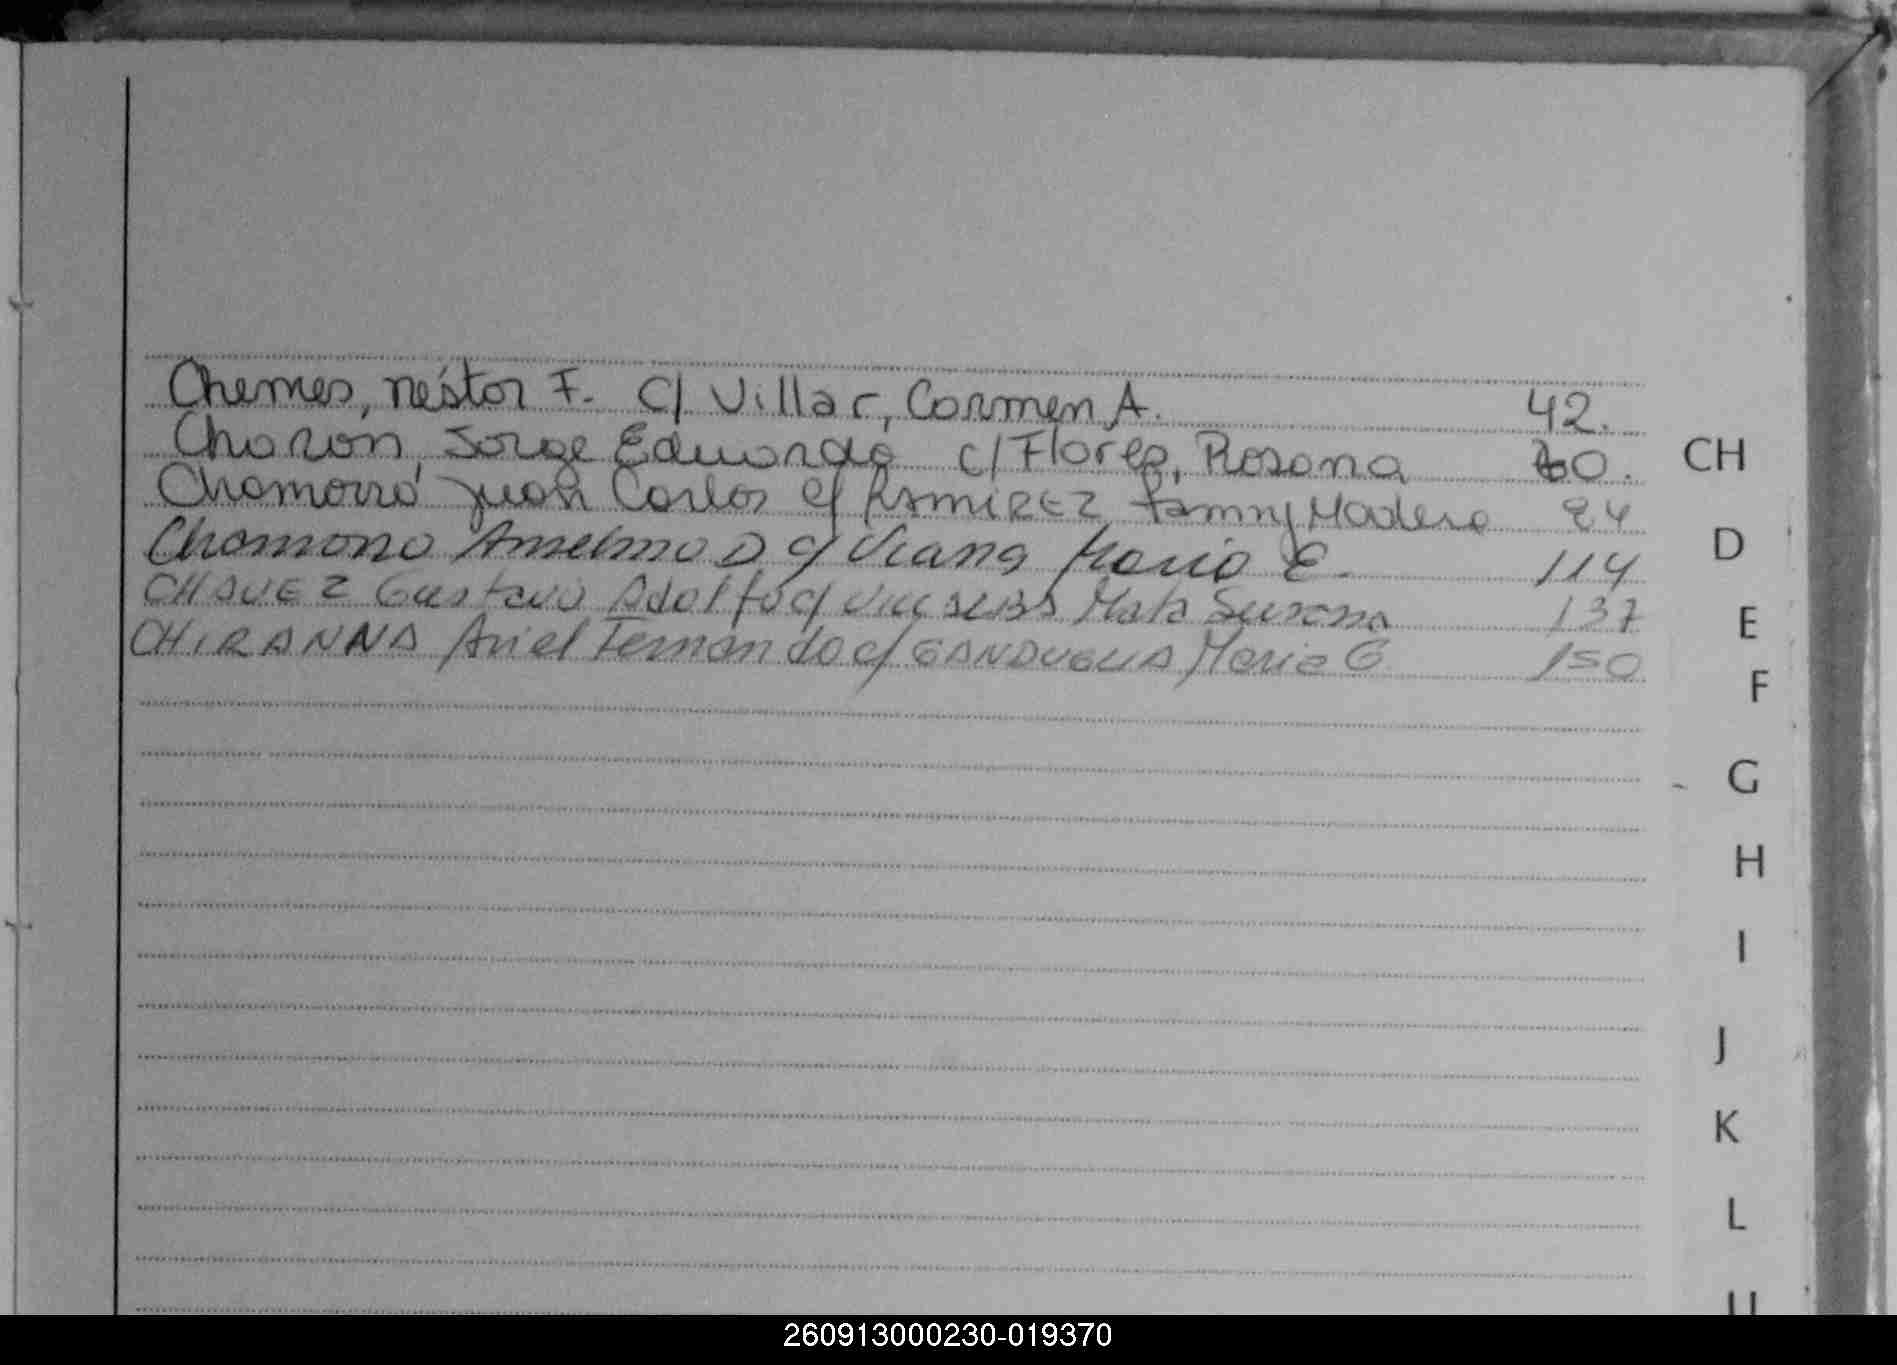 Chemes, Néstor F. c/ Villar, Carmen A. 42.
Charon, Jorge Eduardo c/ Flores, Rosana 60.
Chamorro Juan Carlos c/ RAMIREZ Fanny Madera 94
Chamorro Anselmo D c/ Viana Maria E. 114
CHAVEZ Gustavo Adolfo c/ Marta Susana 137
CHIRANNA Ariel Fernando c/ GANDUGLIA Maria G 150
CH
D
E
F
G
H
I
J
K
L
260913000230-019370